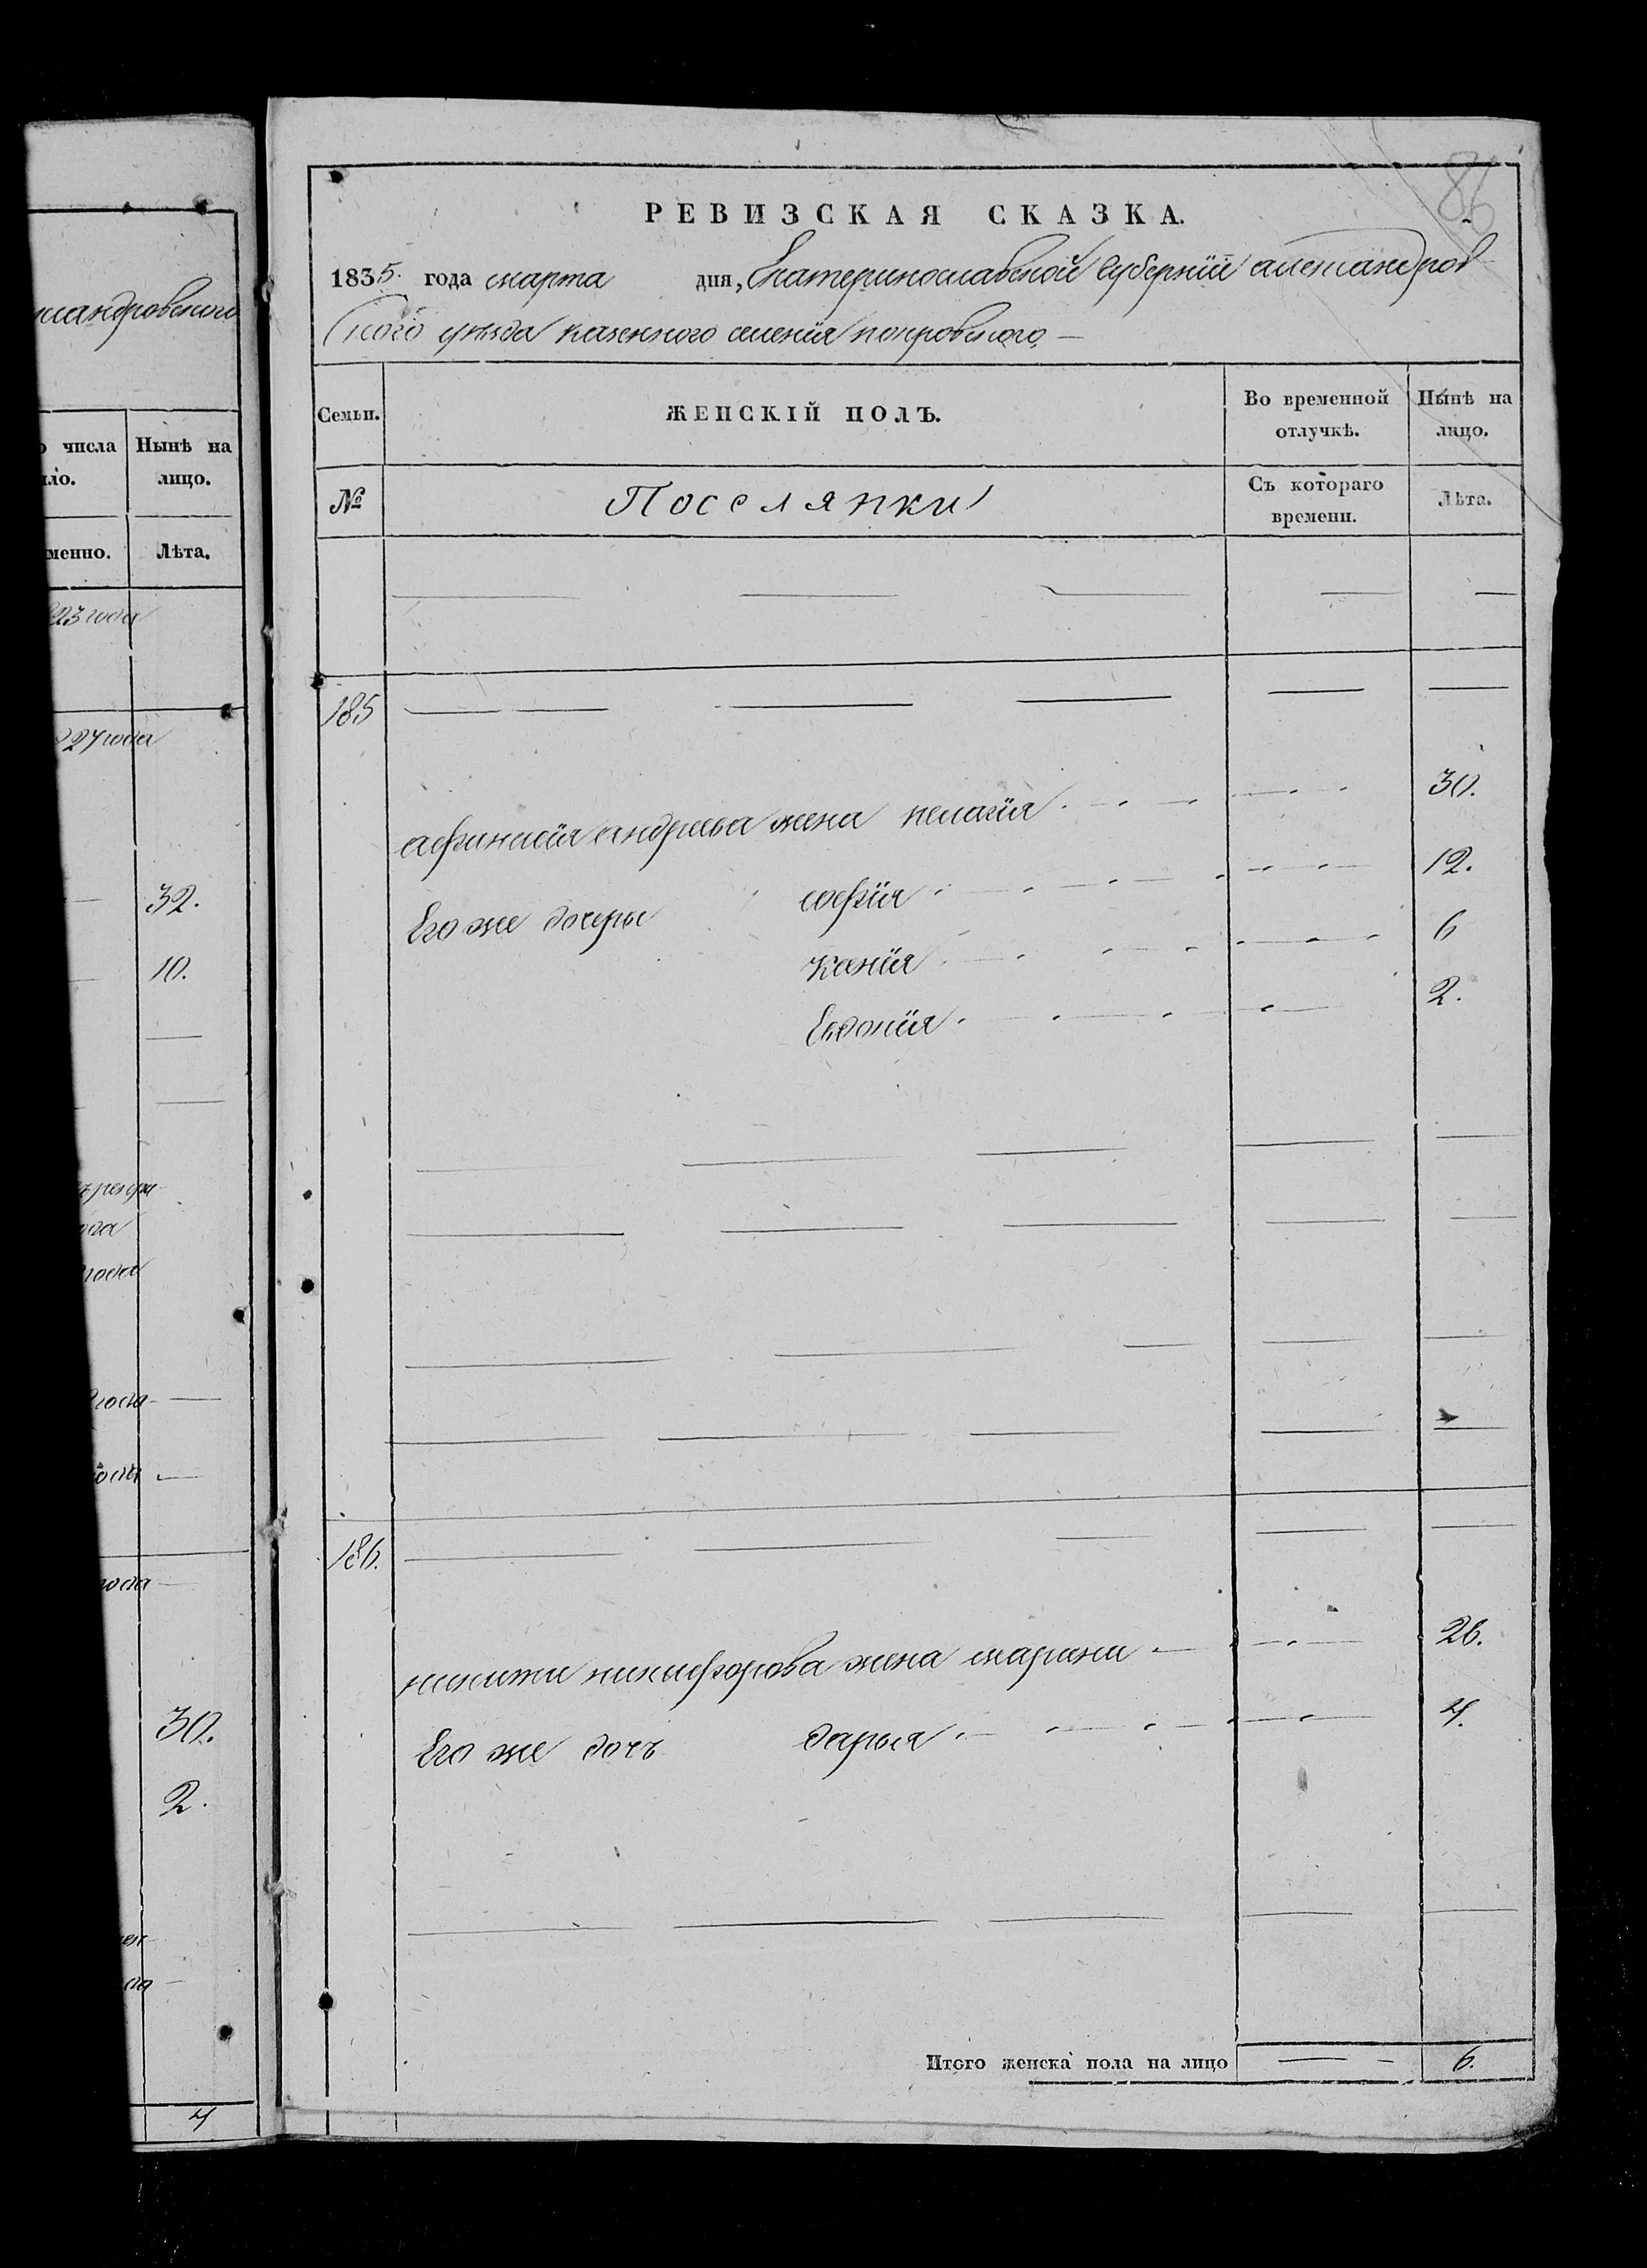 мандровского
о числа Нынѣ на
ло. лицо.
менно. Лѣта.
823 года
827 года
32.
10.
года
года
30.
2.
4
86
РЕВИЗСКАЯ СКАЗКА.
1835. года марта дня, Екатеринославской Губернïи александров
ского уѣзда казенного селенïя покровского
Семьи. ЖЕНСКІЙ ПОЛЪ. Во временной Нынѣ на
отлучкѣ. лицо.
№ Поселянки Съ котораго Лѣта.
времени.
185
афинасïя андреева жена пелагïя 30.
Его же дочеры софïя 12.
Ксенïя 6
Евдокïя 2.
186.
никиты никифорова жена марина 26.
Его же дочь дарья 4.
Итого женска пола на лицо 6.